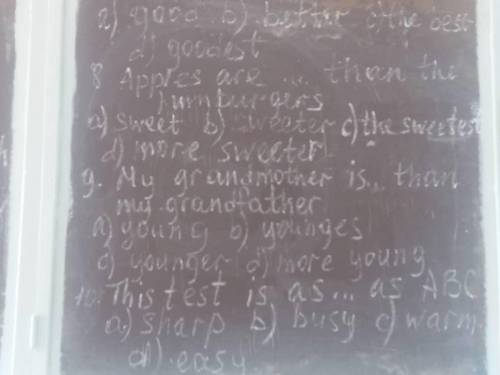 a) good b) better c) the best
d) goodest
8 Apples are ... than the
humburgers
a) sweet b) sweeter c) the sweetest
d) more sweeter
9. My grandmother is ... than
my grandfather
a) young b) younges
c) younger d) more young
10. This test is as ... as ABC
a) sharp b) busy c) warm
d) easy